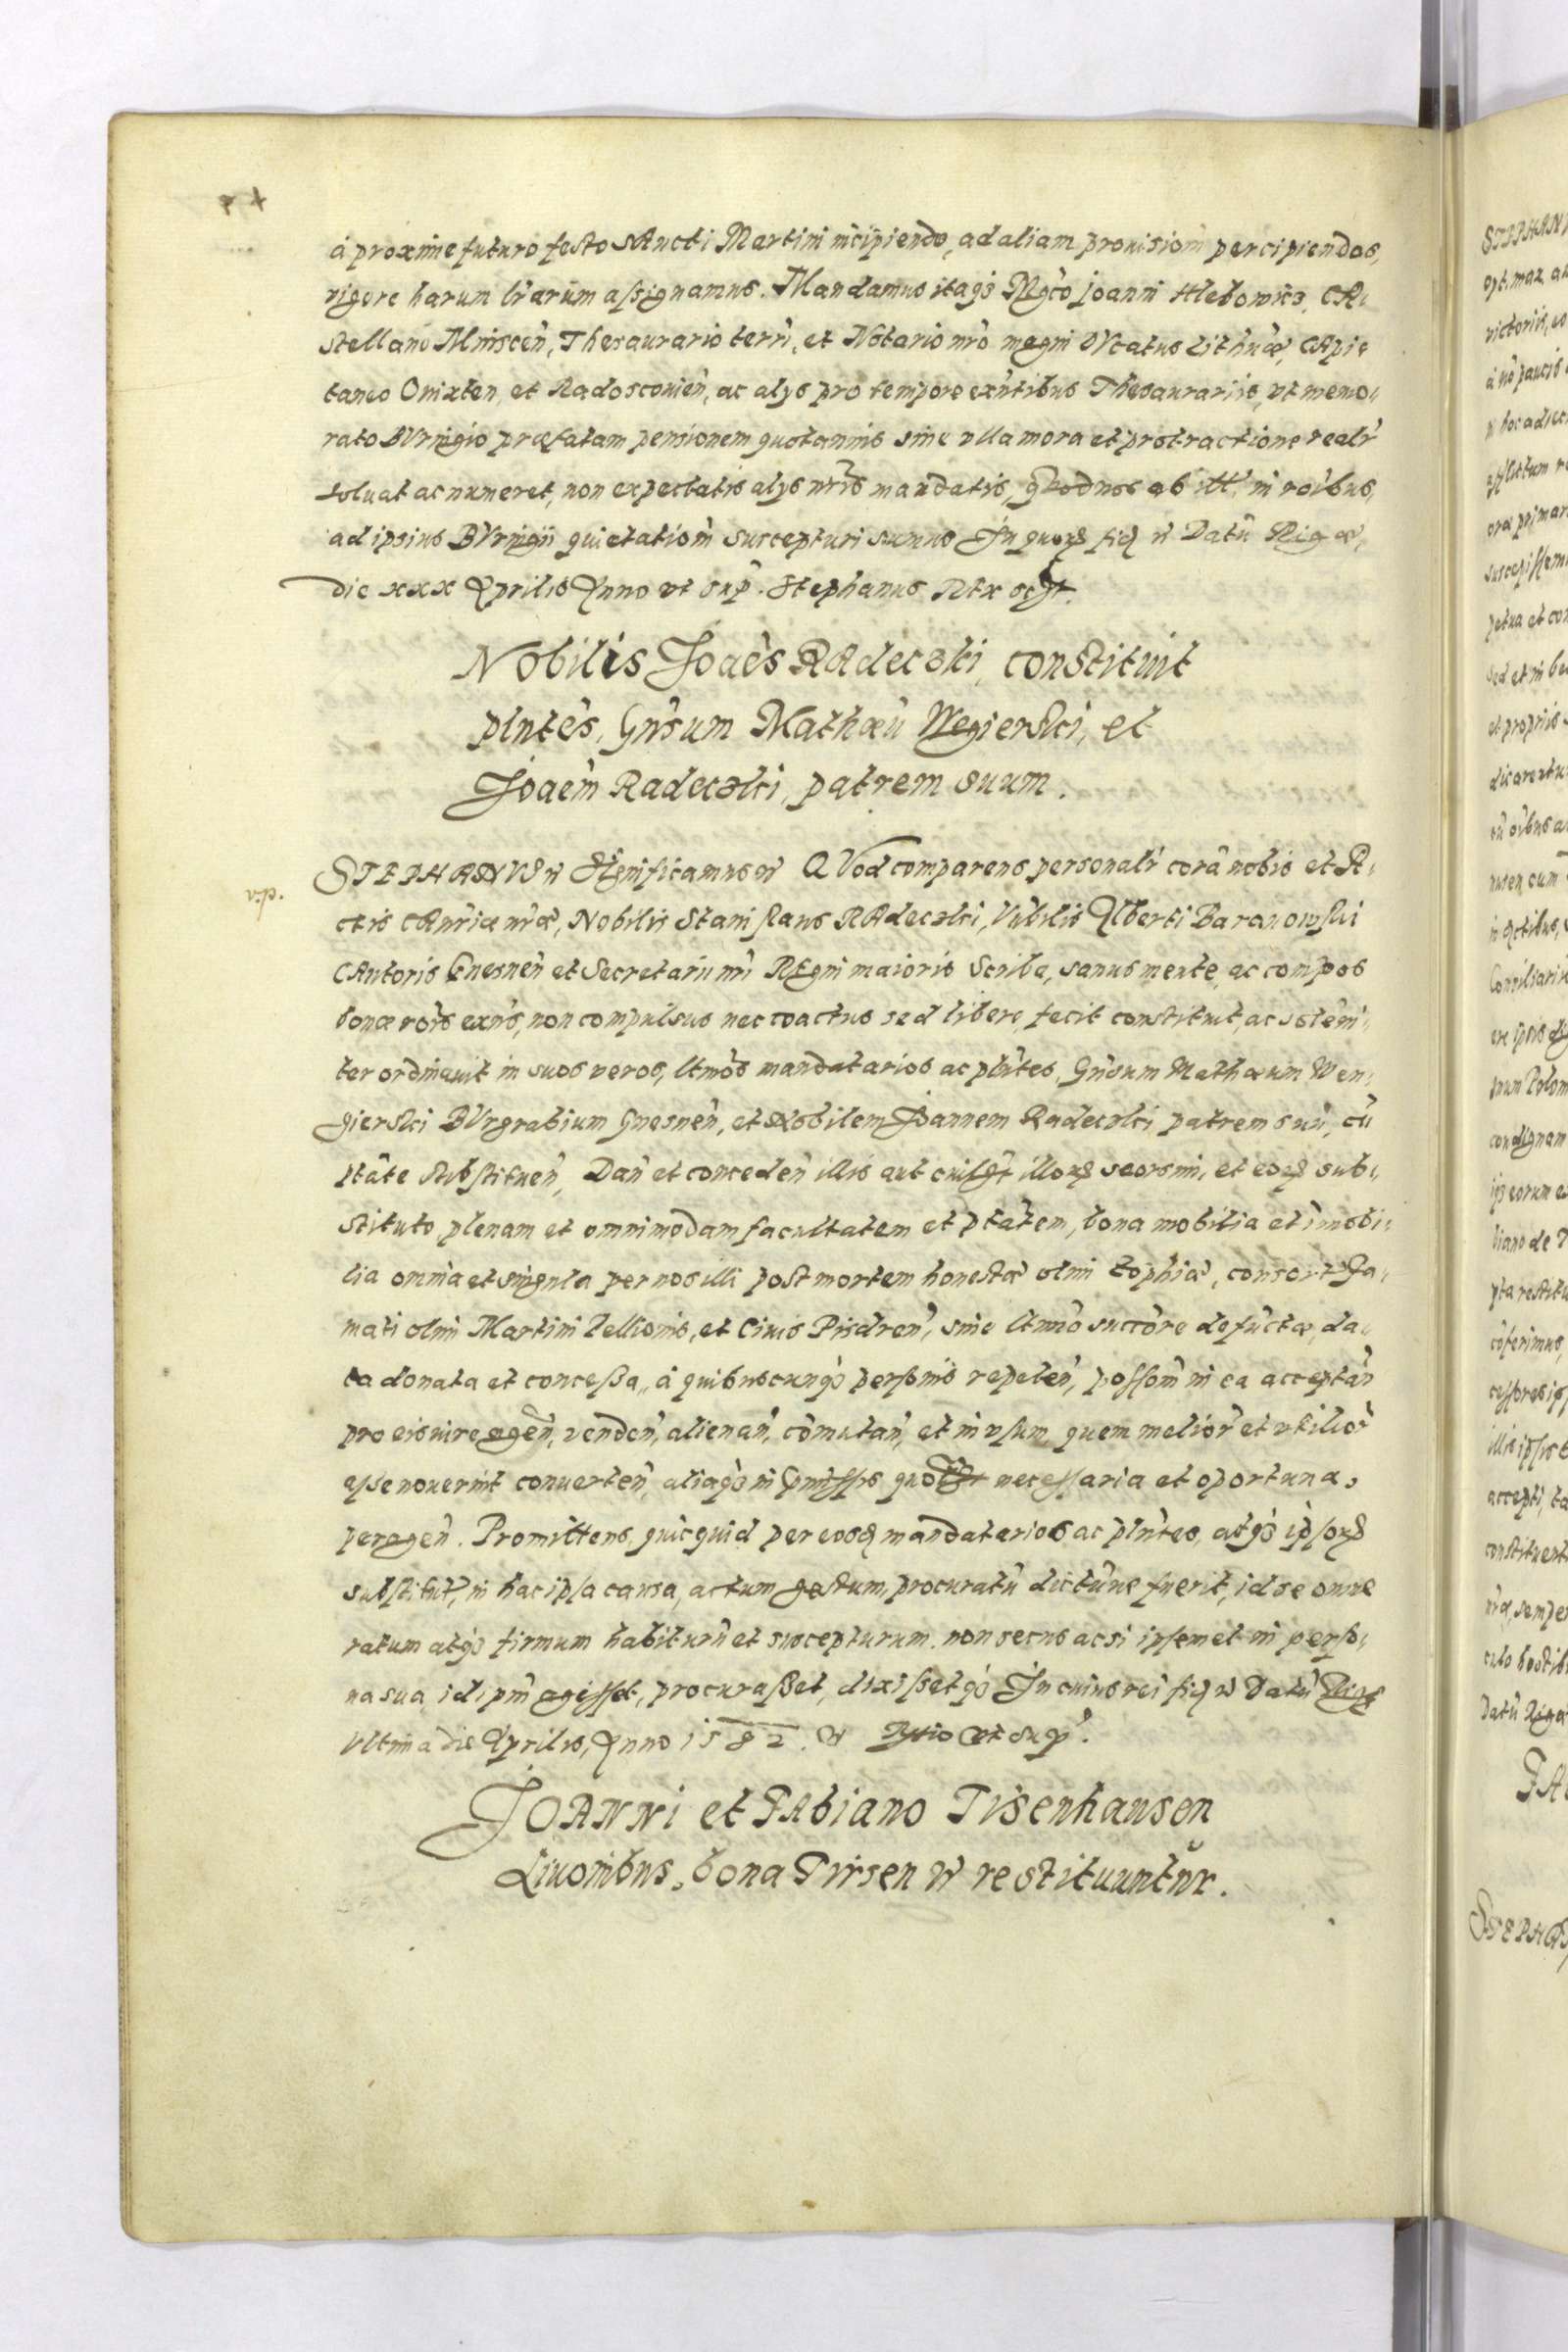 à proxime futuro festo sAncti Martini incipiendo, ad aliam prouisiom̃ percipiendos,
vigore harum lr̃arum assignamus. Mandamus itaqз Mg̃co Joanni Hlebowicz, CA-
stellano Minscen̄, Thesaurario terr̃, et Notario nr̃o magni DVcatus Lithũæ, CApi-
taneo Onixten, et Radosconien̄, ac alys pro tempore exñtibus Thesaurariis, vt memo-
rato BVringio præfatam pensionem quotannis sine vlla mora et protractione realr̃
soluat ac numeret, non expectatis alys nr̃is mandatis, Quod nos ab ill. in roĩbus,
ad ipsius BVringii quietatiom̃ suscepturi sumus In quorꝫ fiđ etc̃ Datũ Rigæ,
die xxx Aprilis Anno vt sup̃. Stephanus REx sc̃st.
Nobilis Joañes RAdeczki, constituit
plñtes, Gñsum Mathæũ Wegierski, et
Joaem̃ Radeczki, patrem suum.
STEPHANVS etc̃ Significamus etc̃ QVod comparens personalr̃ corã nobis et A-
ctis CAnr̃iæ nr̃æ, Nobilis Stanislaus RAdeczki, Vñbilis Alberti Baranowski
CAntoris Gnesnen̄ et Secretarii nr̃i REgni maioris Scriba, sanus mente, ac compos
bonæ roĩs exñs, non compulsus nec coactus sed libere, fecit constituit, ac solẽni-
ter ordinauit in suos veros, ltm̃os mandatarios ac plñtes, Gñsum Mathæum Wen-
gierski BVrgrabium Gnesnen̄, et Nobilem Joannem Radeczki patrem suũ, cũ
ptãte Substituen̄, Dan̄ et conceden̄ illis aut cuilꝫt illorꝫ seorsim, et eorꝫ sub-
stituto plenam et omnimodam facultatem et ptãtem, bona mobilia et im̃obi-
lia omnia et singula per nos illi post mortem honestæ olim Sophiæ, consort̃ Fa-
mati olim Martini Pellionis, et Ciuis Pisdren̄, sine ltm̃o succ̃ore defũctæ, da-
ta donata et concessa, à quibuscunqз personis repeten̄, possom̃ in ea acceptan̄
pro eis iure agen̄, venden̄, alienan̄, com̃utan̄, et in vsum quem melior̃ et vtilior̃
esse nouerint conuerten̄, aliaqз in p̃missis necessaria et oportuna,
peragen̄. Promittens, quicquid per eosđ mandatarios ac plñtes, atqз ipsorꝫ
substitut, in hac ipsa causa, actum gestum, procuratũ dictũue fuerit, id se omne
ratum atqз firmum habiturũ et suscepturum. non secus ac si ipsemet in perso-
na sua, id ipm̃ agisset, procurasset, dixissetqз In cuius rei fiđ etc̃ Datũ Rigæ
Vltima die Aprilis, Anno 1582. etc̃ vt sup̃.
JOANNi et FAbiano Tisenhausen
Liuonibus, bona Tirsen etc̃ restituuntur.